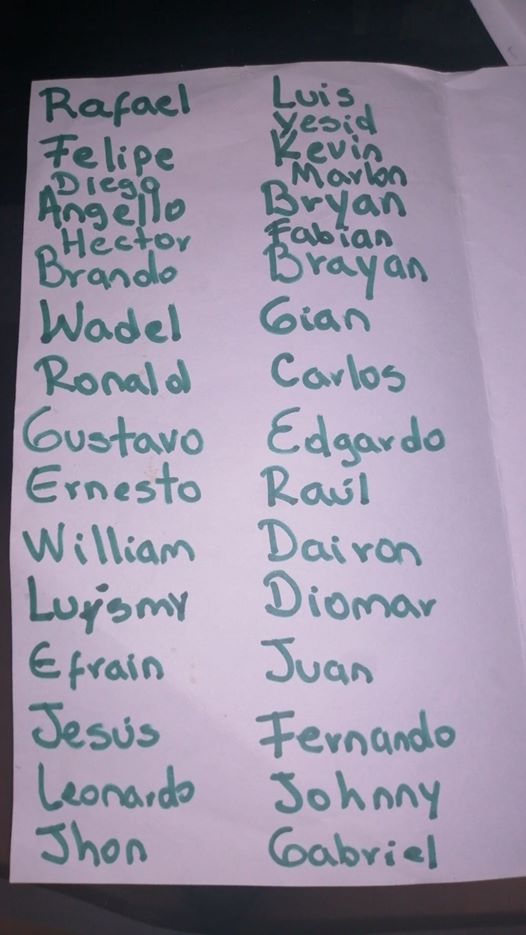 Rafael
Felipe
Diego
Angello
Hector
Brando
Wadel
Ronald
Gustavo
Ernesto
William
Luysmy
Efrain
Jesús
Leonardo
Jhon
Luis
Yesid
Kevin
Marlon
Bryan
Fabian
Brayan
Gian
Carlos
Edgardo
Raúl
Dairon
Diomar
Juan
Fernando
Johnny
Gabriel